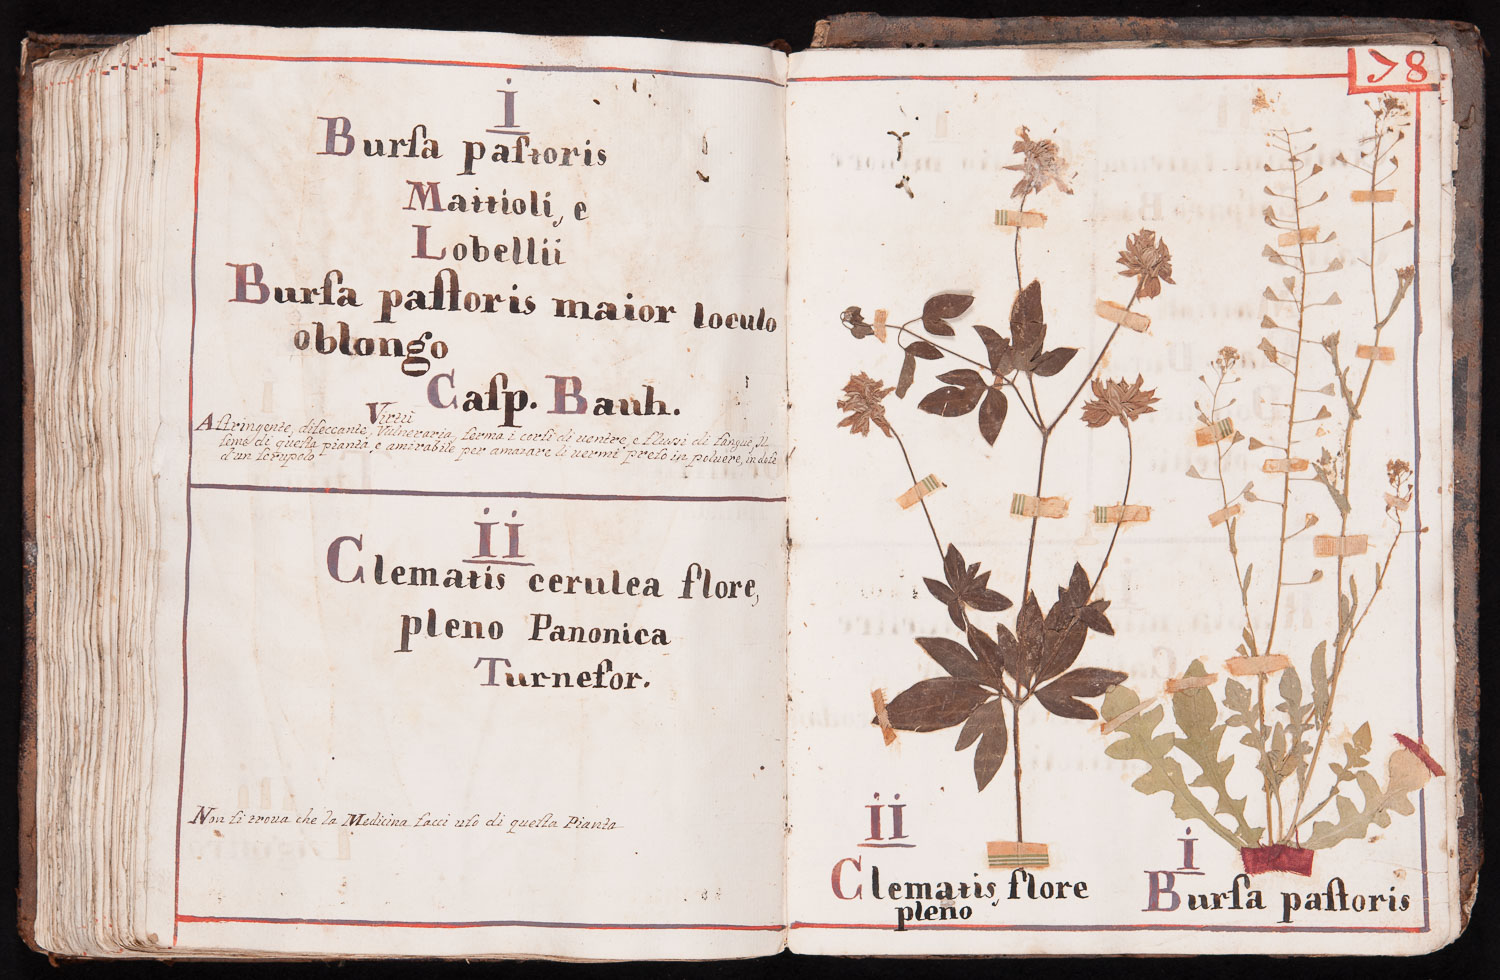 i
Burſa paſtoris
Mattioli, e
Lobellii
Burſa paſtoris maior loculo
oblongo
Caſp. Bauh.
Virtù
Aſtringente, diſeccante, Vulneraria, ferma i corſi di ventre, e fluſſi di ſangue, Il
ſeme di queſta pianta, e amirabile per amazare li uermi preſo in poluere, in doſe
d'un ſcrupolo
ii
Clematis cerulea flore,
pleno Panonica
Turnefor.
Non ſi troua che la Medicina facci uſo di queſta Pianta
78
ii
Clematis, flore
pleno
i
Burſa paſtoris